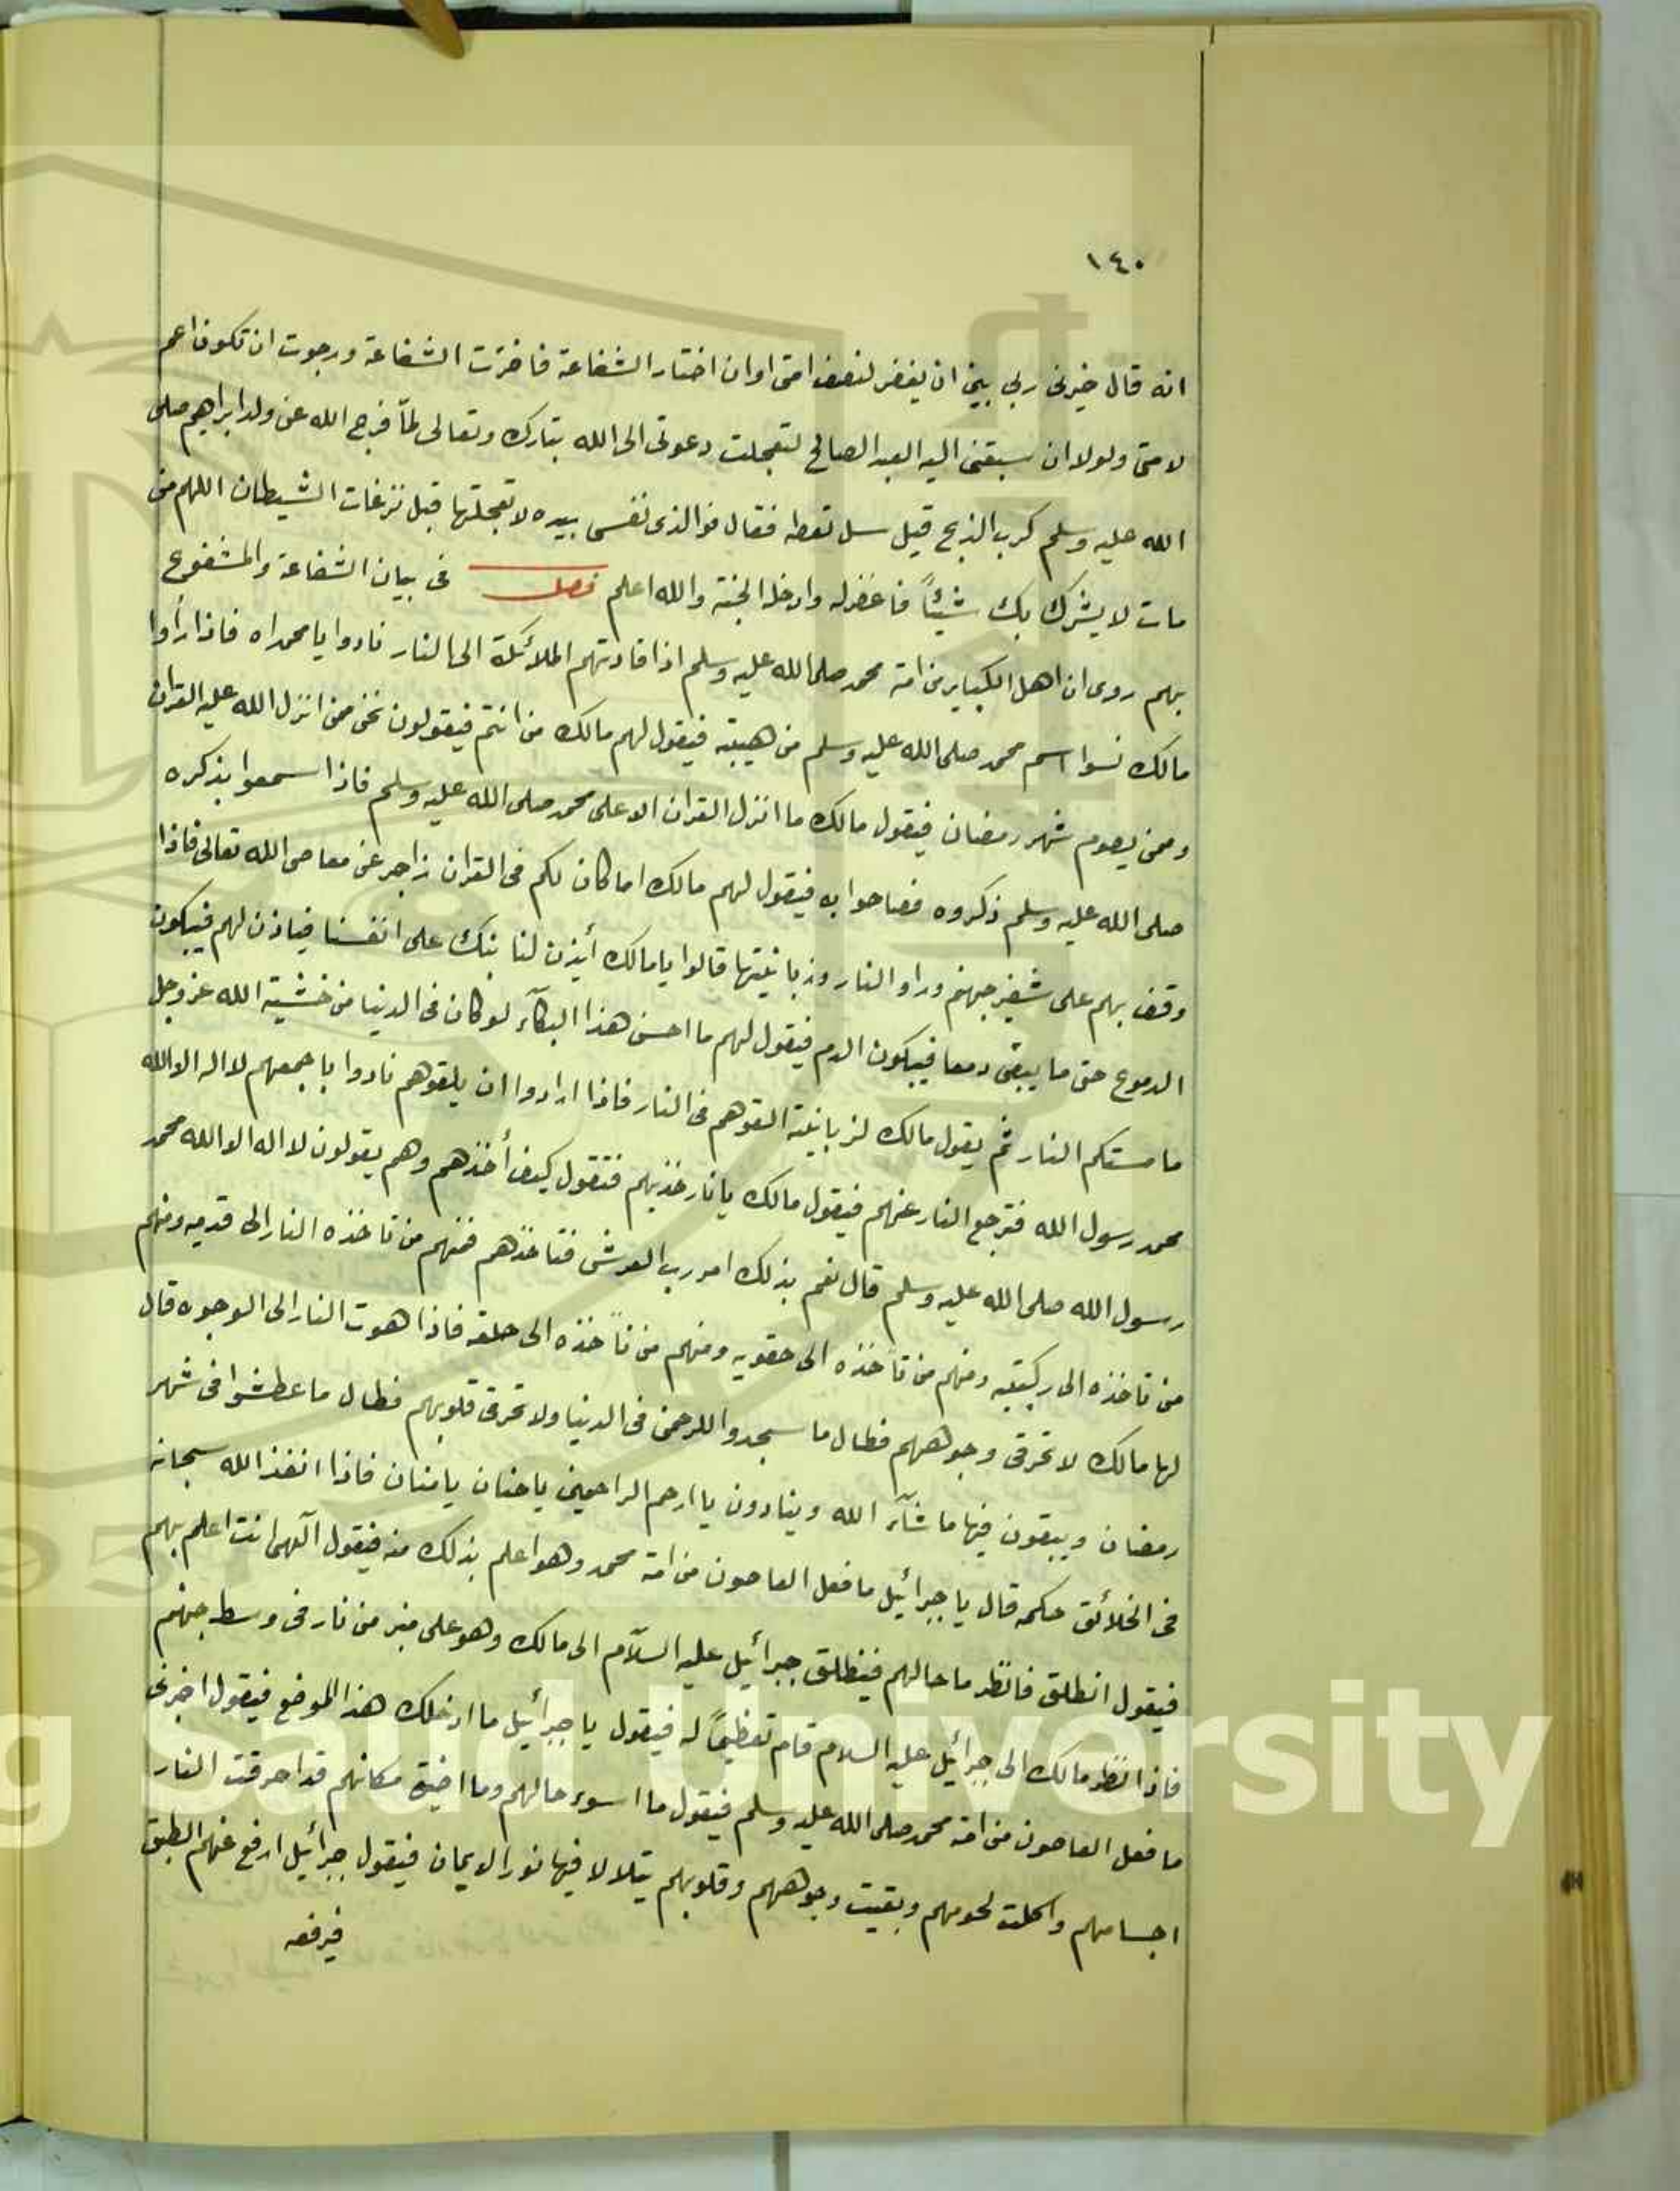 ١٤٠
انه قال خيرنى ربى بين ان يغفر لنصف امتى او ان اختار الشفاعة فاخترت الشفاعة ورجوت ان تكون اعم
لامتى ولولا ان سبقنى اليه العبد الصالح لتعجلت دعوتى الى الله تبارك وتعالى لمّا فرج الله عن ولد ابراهيم صلى
الله عليه وسلم كرب الذبح قيل سل تعطه فقال فوالذى نفسى بيده لا تعجلتها قبل نزغات الشيطان اللهم من
مات لا يشرك بك شيئاً فاغفر له وادخله الجنة والله اعلم فصل فى بيان الشفاعة والمشفوع
بهم روى ان اهل الكباير من امة محمد صلى الله عليه وسلم اذا قادتهم الملائكة الى النار نادوا يا محمداه فاذا رأوا
مالك نسوا اسم محمد صلى الله عليه وسلم من هيبته فيقول لهم مالك من انتم فيقولون نحن ممن انزل الله عليه القران
وممن يصوم شهر رمضان فيقول مالك ما انزل القران الا على محمد صلى الله عليه وسلم فاذا سمعوا بذكره
صلى الله عليه وسلم ذكروه فصاحوا به فيقول لهم مالك اما كان لكم فى القران زاجر عن معاصى الله تعالى فاذا
وقف بهم على شفير جهنم وراو النار وزبانيتها قالوا يا مالك أيذن لنا نبك على انفسنا فياذن لهم فيبكون
الدموع حتى ما يبقى دمعا فيبكون الدم فيقول لهم ما احسن هذا البكآء لو كان فى الدنيا من خشية الله عز وجل
ما مستكم النار ثم يقول مالك لزبانية القوهم فى النار فاذا ارادوا ان يلقوهم نادوا باجمعهم لا اله الا الله
محمد رسول الله فترجع النار عنهم فيقول مالك يا نار خذيهم فتقول كيف أخذهم وهم يقولون لا اله الا الله محمد
رسول الله صلى الله عليه وسلم قال نعم بذلك امر رب العرش فتاخذهم فمنهم من تاخذه النار الى قدميه ومنهم
من تاخذه الى ركبتيه ومنهم من تاخذه الى حقويه ومنهم من تأخذه الى حلقه فاذا هوت النار الى الوجوه قال
لها مالك لا تحرقى وجوههم فطال ما سجدوا للرحمن فى الدنيا ولا تحرقى قلوبهم فطال ما عطشوا فى شهر
رمضان ويبقون فيها ما شآء الله وينادون يا ارحم الراحمين يا حنان يا منان فاذا انفذ الله سبحانه
فى الخلائق حكمه قال يا جبرائيل ما فعل العاصون من امة محمد وهو اعلم بذلك منه فيقول آلهى انت اعلم بهم
فيقول انطلق فانظر ما حالهم فينطلق جبرائيل عليه السلآم الى مالك وهو على منبر من نار فى وسط جهنم
فاذا نظر مالك الى جبرائيل عليه السلام قام تعظيماً له فيقول يا جبرائيل ما ادخلك هذا الموضع فيقول اخبرنى
ما فعل العاصون من امة محمد صلى الله عليه وسلم فيقول ما اسوء حالهم وما اضيق مكانهم قد احرقت النار
اجسامهم واكلت لحومهم وبقيت وجوههم وقلوبهم يتلالا فيها نور الايمان فيقول جبرائيل ارفع عنهم الطبق
فيرفعه
King Saud University